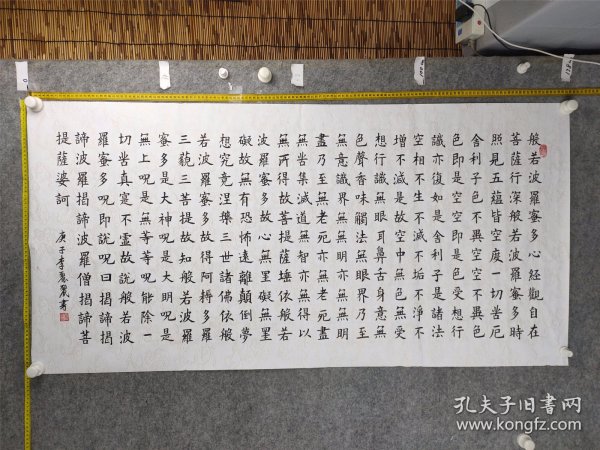 般若波羅蜜多心經觀自在
菩薩行深般若波羅蜜多時
照見五蘊皆空度一切苦厄
舍利子色不異空空不異色
色即是空空即是色受想行
識亦復如是舍利子是諸法
空相不生不滅不垢不淨不
增不減是故空中無色無受
想行識無眼耳鼻舌身意無
色聲香味觸法無眼界乃至
無意識界無無明亦無無明
盡乃至無老死亦無老死盡
無苦集滅道無智亦無得以
無所得故菩提薩埵依般若
波羅蜜多故心無罣礙無罣
礙故無有恐怖遠離顛倒夢
想究竟涅槃三世諸佛依般
若波羅蜜多故得阿耨多羅
三藐三菩提故知般若波羅
蜜多是大神呪是大明呪是
無上呪是無等等呪能除一
切苦真實不虛故說般若波
羅蜜多呪即說呪曰揭諦揭
諦波羅揭諦波羅僧揭諦菩
提薩婆訶
庚子李書
孔夫子旧书网
www.kongfz.com